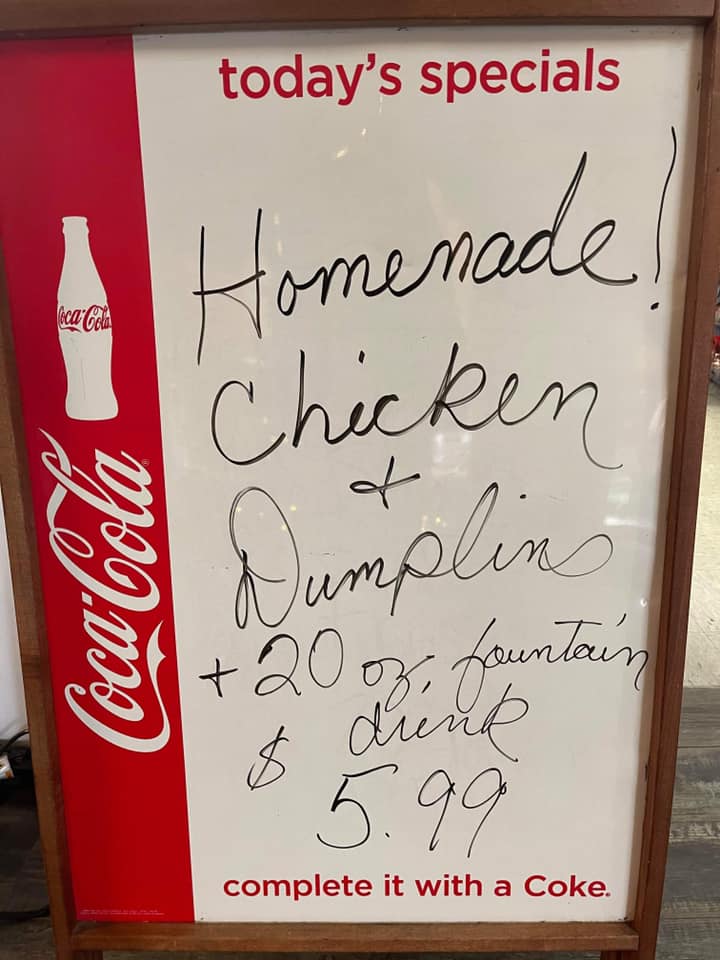 today's specials
Homemade!
Chicken
+
Dumplins
+ 20 oz. fountain
drink
$
5.99
complete it with a Coke.
Coca-Cola
Coca-Cola